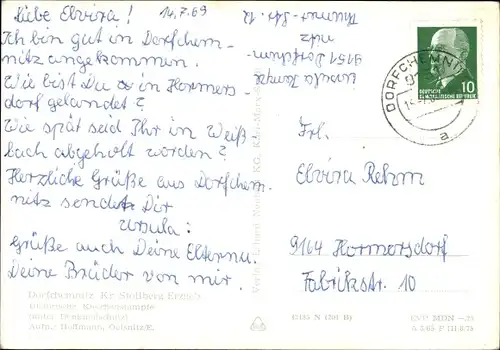 Liebe Elvira! 14.7.69
Ich bin gut in Dorfchem-
nitz angekommen.
Wie bist Du in Hormers-
dorf gelandet?
Wie spät seid Ihr im Weiß
bach abgeholt worden?
Herzliche Grüße aus Dorfchem
nitz sendet Dir
Ursula!
Grüße auch Deine Eltern u.
Deine Brüder von mir.
Ursula
9151 Dorfchem-
nitz
Thumer-Str. 12
DORFCHEMNITZ
a
DEUTSCHE
DEMOKRATISCHE REPUBLIK
10
Frl.
Elvira Rehm
9164 Hormersdorf
Fabrikstr. 10
Dorfchemnitz Kr. Stollberg Erzgeb.
(unter Denkmalschutz)
Aufn.: Hoffmann, Oelsnitz/E.